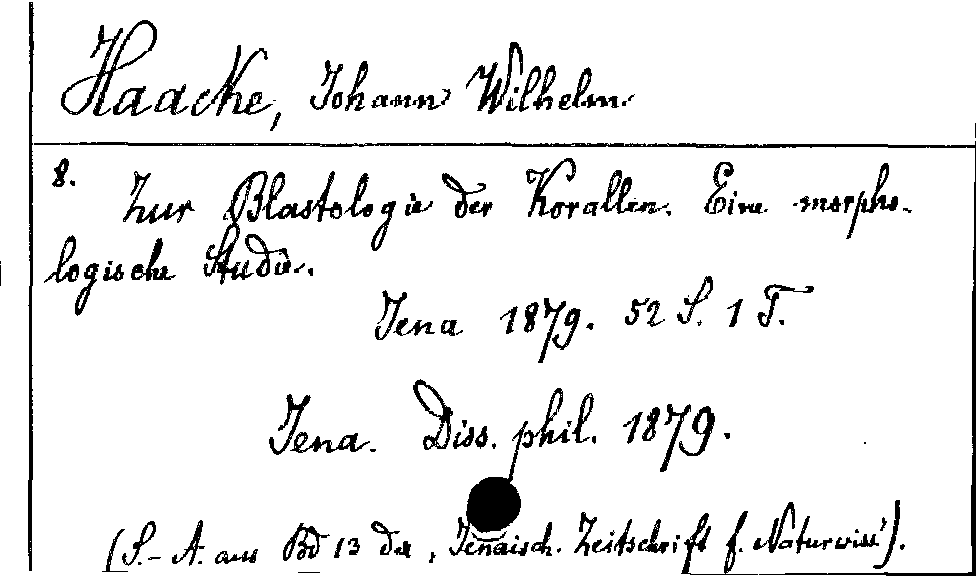 Haacke, Johann Wilhelm
8.
Zur Blastologie der Korallen. Eine morpho-
logische Studie.
Jena 1879. 52 S. 1 T.
Jena. Diss. phil. 1879.
(S.-A. aus Bd 13 der „Jenaisch. Zeitschrift f. Naturwiss").